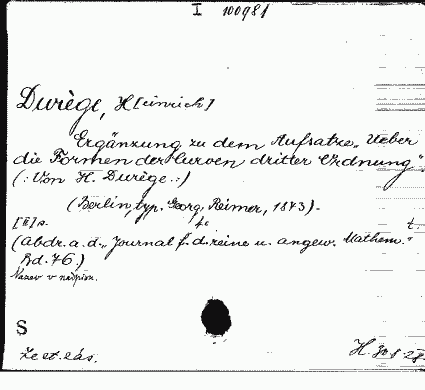 I 100981
Durège, H[einrich]
Ergänzung zu dem Aufsatze „Ueber
die Formen der Curven dritter Ordnung“.
(: Von H. Durège. :)
(Berlin, typ. Georg Reimer, 1873).
[II] s. 4° t.
(Abdr. a. d. „Journal f. d. reine u. angew. Mathem.“
Bd. 76.)
Název v nadpisu.
S